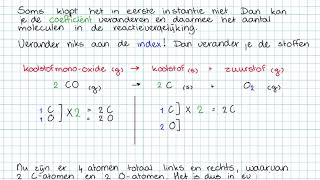 Soms klopt het in eerste instantie niet. Dan kan
je de coefficient veranderen en daarmee het aantal
moleculen in de reactievergelijking.
Verander niks aan de index! Dan verander je de stoffen
koolstofmono-oxide (g) → koolstof (s) + zuurstof (g)
2 CO (g) → 2 C (s) + O₂ (g)
1 C ] x 2 = 2 C 1 C ] x 2 = 2 C
1 O ] = 2 O 2 O ]
Nu zijn er 4 atomen totaal links en rechts, waarvan
2 C-atomen en 2 O-atomen. Het is dus in ev